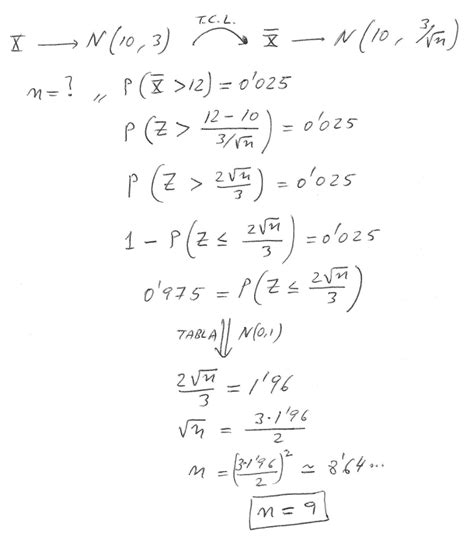 X → N(10, 3) T.C.L. X̄ → N(10, 3/√n)
n = ? ,, P(X̄ > 12) = 0'025
P(Z > (12 - 10)/(3/√n)) = 0'025
P(Z > 2√n/3) = 0'025
1 - P(Z ≤ 2√n/3) = 0'025
0'975 = P(Z ≤ 2√n/3)
TABLA ⇓ N(0,1)
2√n/3 = 1'96
√n = 3·1'96/2
n = (3·1'96/2)² ≃ 8'64...
n = 9